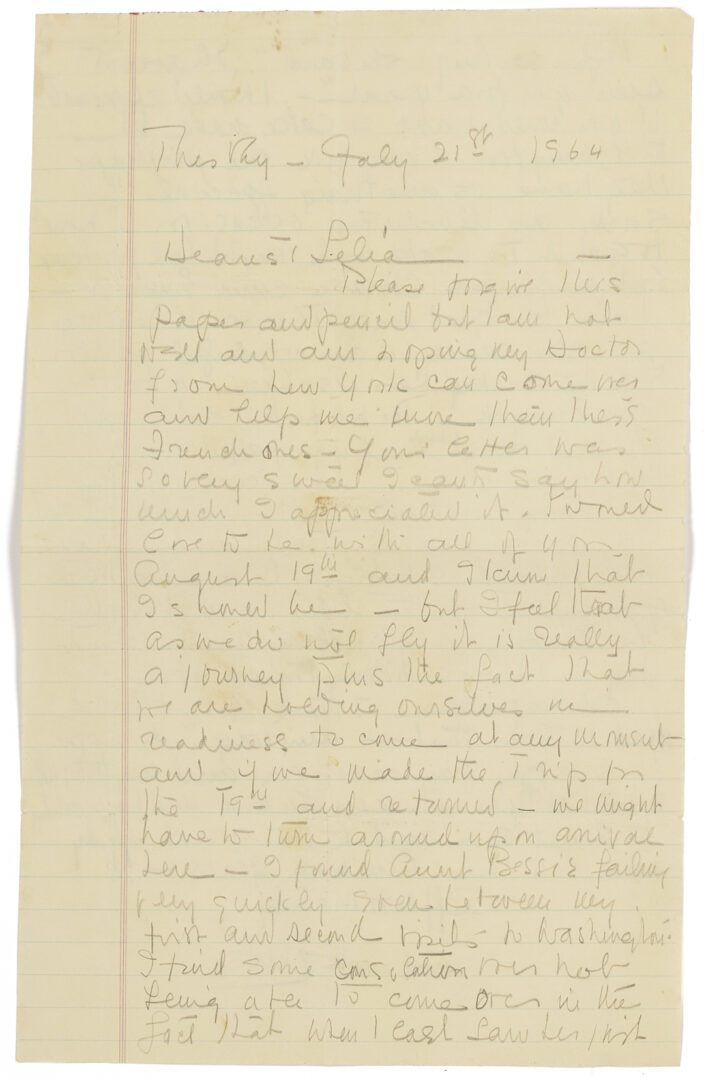 Thursday – July 21st 1964
Dearest Lelia —
Please forgive this
paper and pencil but I am not
well and am hoping my Doctor
from New York can come over
and help me more than these
French ones – Your letter was
so very sweet I can't say how
much I appreciated it. I would
love to be with all of you
August 19th and I know that
I should be — but I feel that
as we do not fly it is really
a journey plus the fact that
we are holding ourselves in
readiness to come at any moment
and if we made the Trip for
the 19th and returned – we might
have to turn around upon arrival
here – I found Aunt Bessie failing
very quickly even between my
first and second visits to Washington.
I find some consolation over not
being able to come over in the
fact that when I last saw her, just